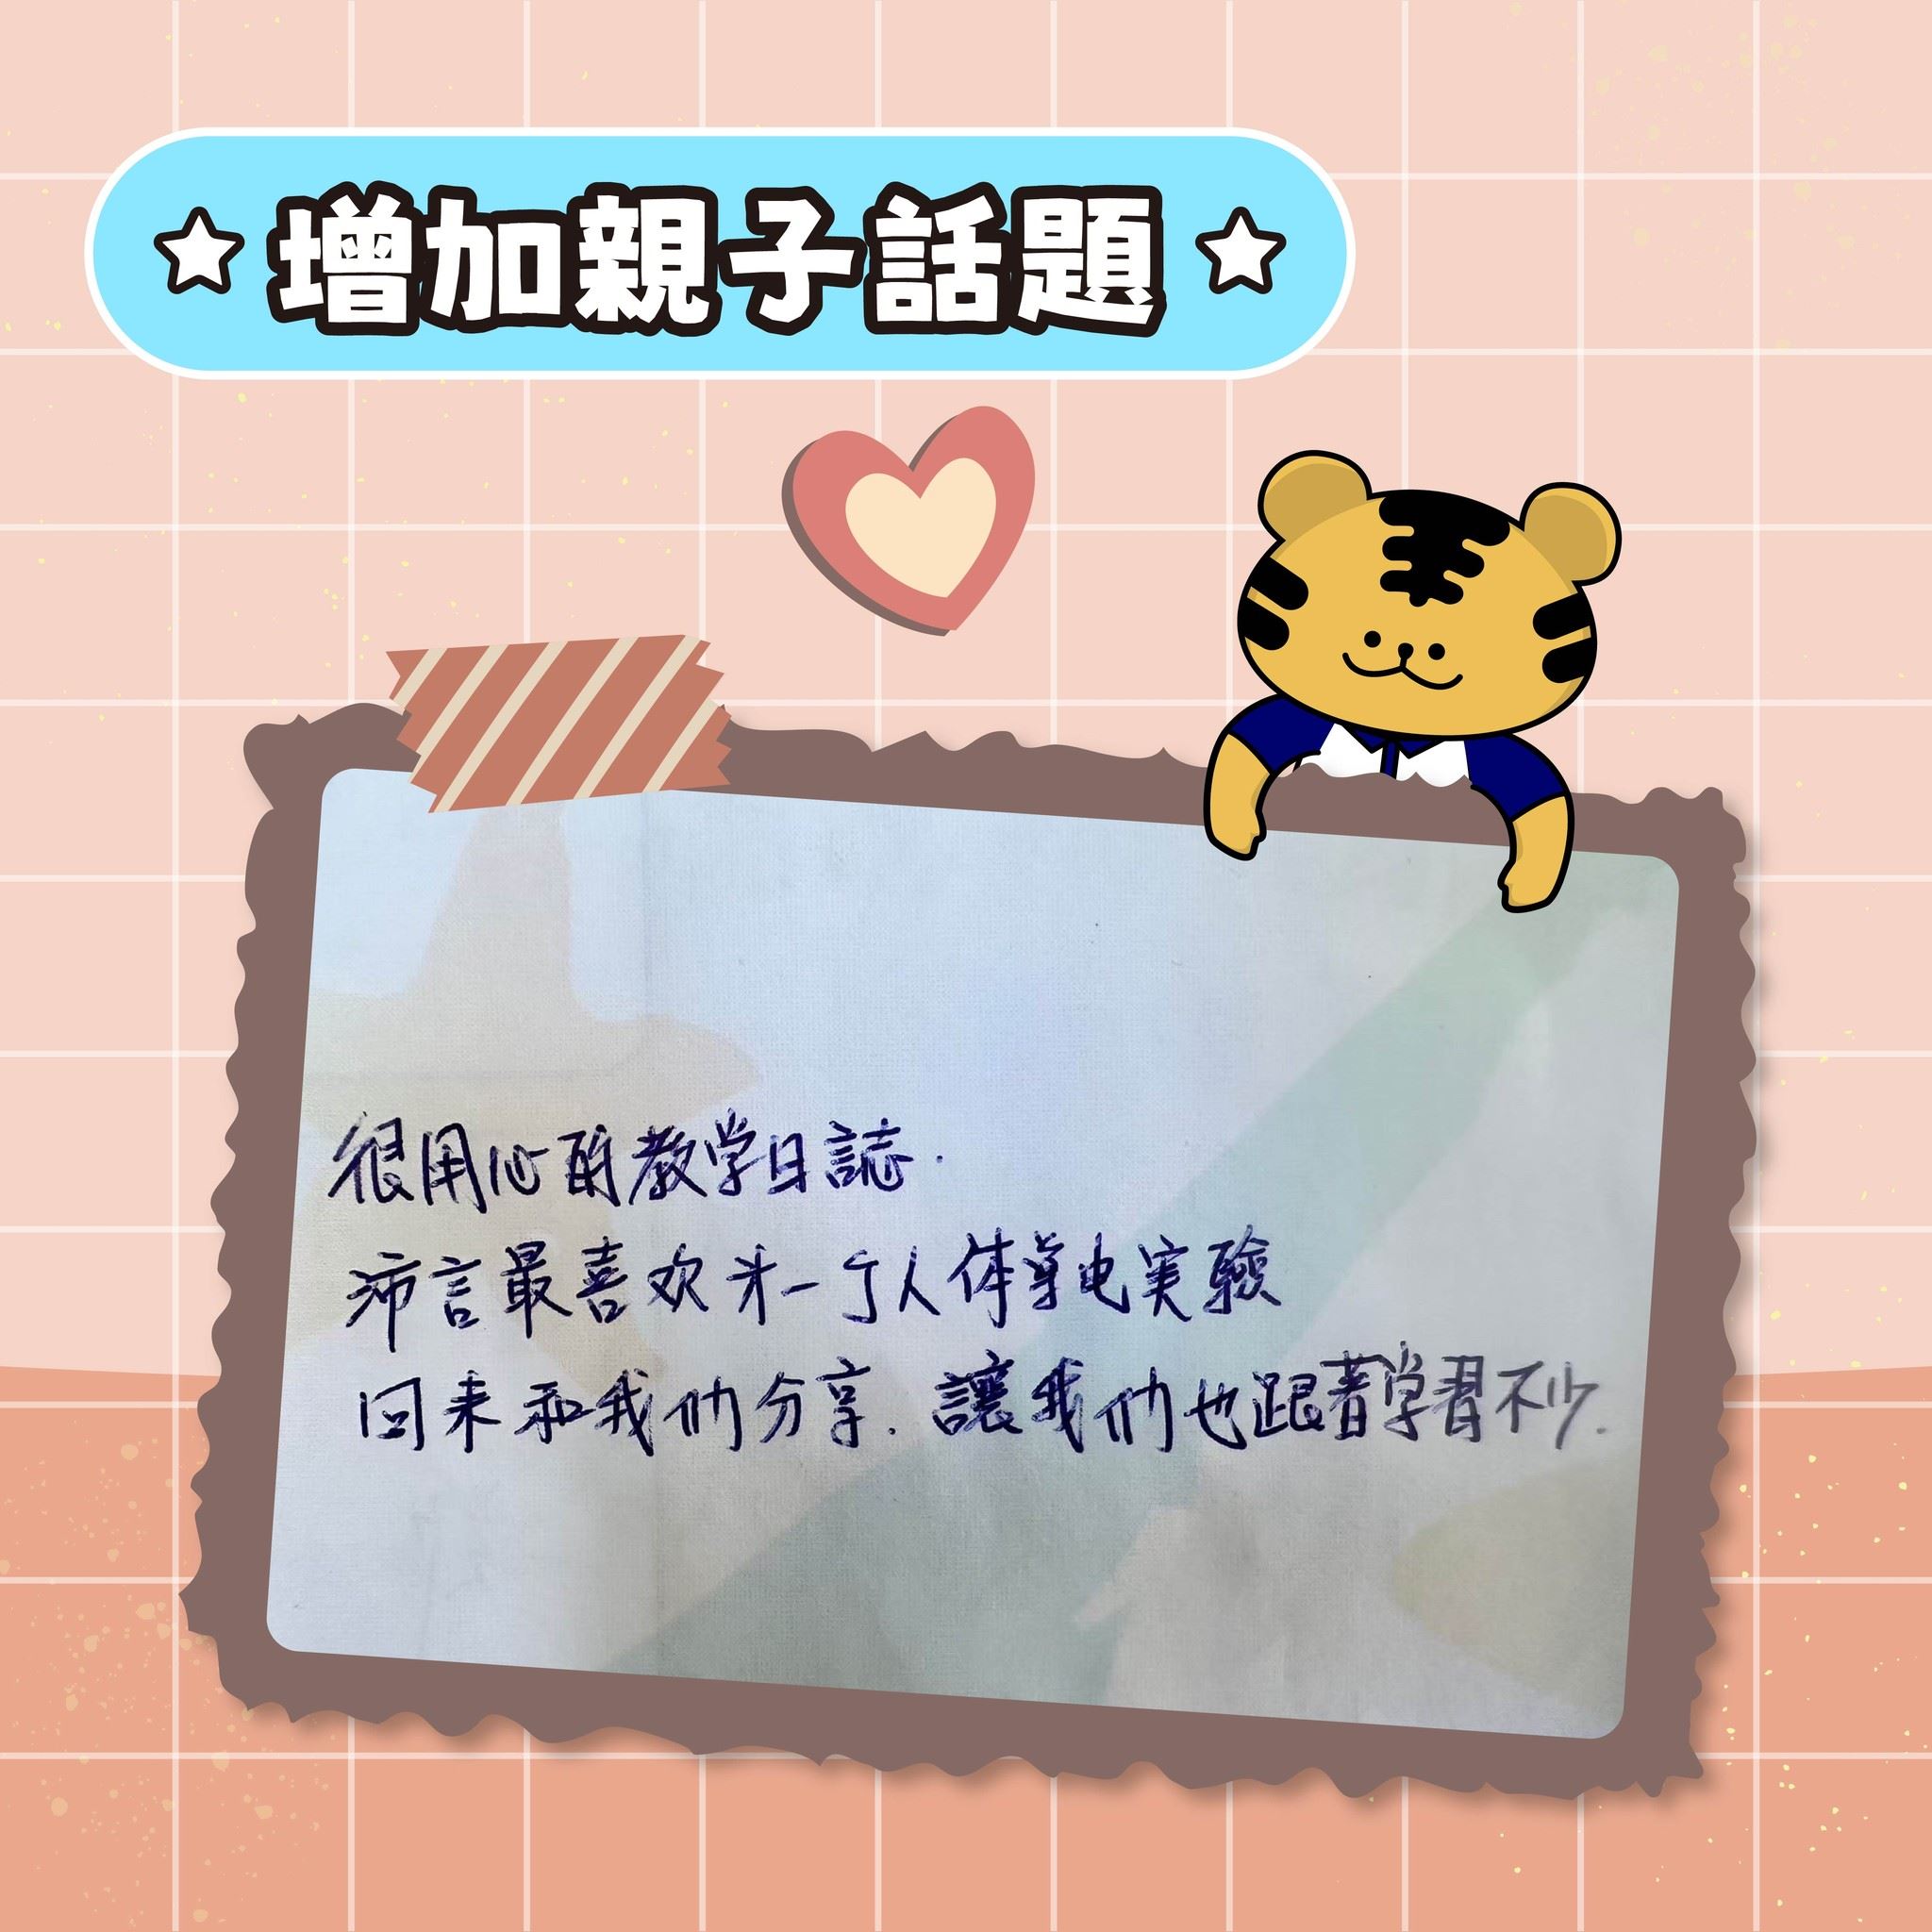 增加親子話題
很用心的教学日誌.
沛言最喜欢第一个人体導电実驗
回来和我们分享. 讓我们也跟著学習不少.